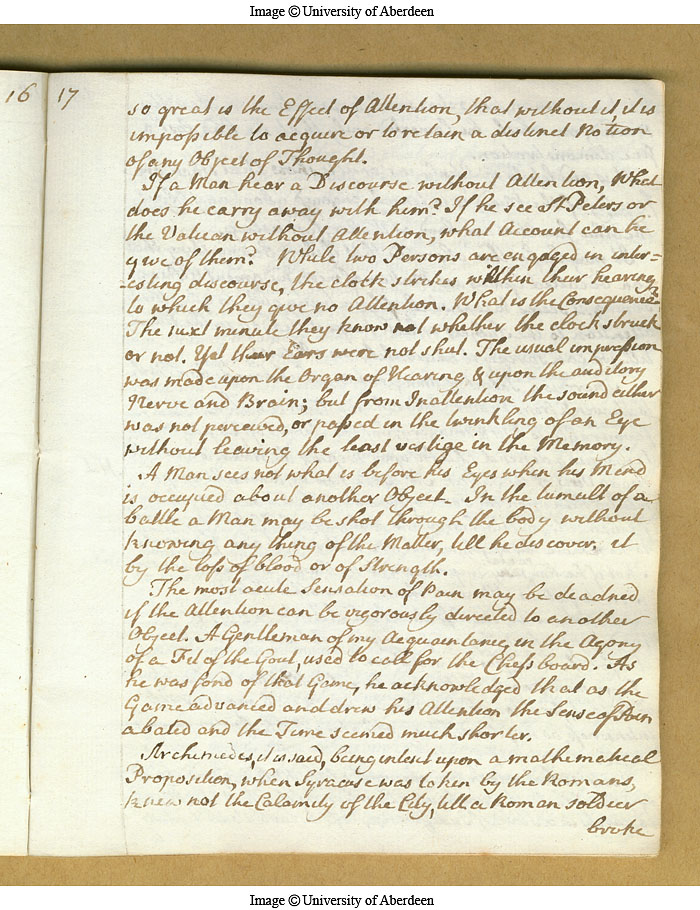 Image © University of Aberdeen
16
17
so great is the Effect of Attention, that without it, it is
impossible to acquire or to retain a distinct Notion
of any Object of Thought.
If a Man hear a Discourse without Attention, What
does he carry away with him? If he see St Peters or
the Vatican without Attention, what Account can he
give of them? While two Persons are engaged in inter=
=esting discourse, the clock strikes within their hearing,
to which they give no Attention. What is the Consequence?
The next minute they know not whether the clock struck
or not. Yet their Ears were not shut. The usual impression
was made upon the Organ of Hearing & upon the auditory
Nerve and Brain; but from Inattention the sound either
was not perceived, or passed in the twinkling of an Eye
without leaving the least vestige in the Memory.
A Man sees not what is before his Eyes when his Mind
is occupied about another Object. In the tumult of a
battle a Man may be shot through the body without
knowing any thing of the Matter, till he discover it
by the loss of blood or of Strength.
The most acute Sensation of Pain may be deadned
if the Attention can be vigorously directed to another
Object. A Gentleman of my Acquaintance, in the Agony
of a Fit of the Gout, used to call for the Chess board. As
he was fond of that Game, he acknowledged that as the
Game advanced and drew his Attention the Sense of Pain
abated and the Time seemed much shorter.
Archimedes, it is said, being intent upon a mathematical
Proposition, when Syracuse was taken by the Romans,
knew not the Calamity of the City, till a Roman soldier
broke
Image © University of Aberdeen